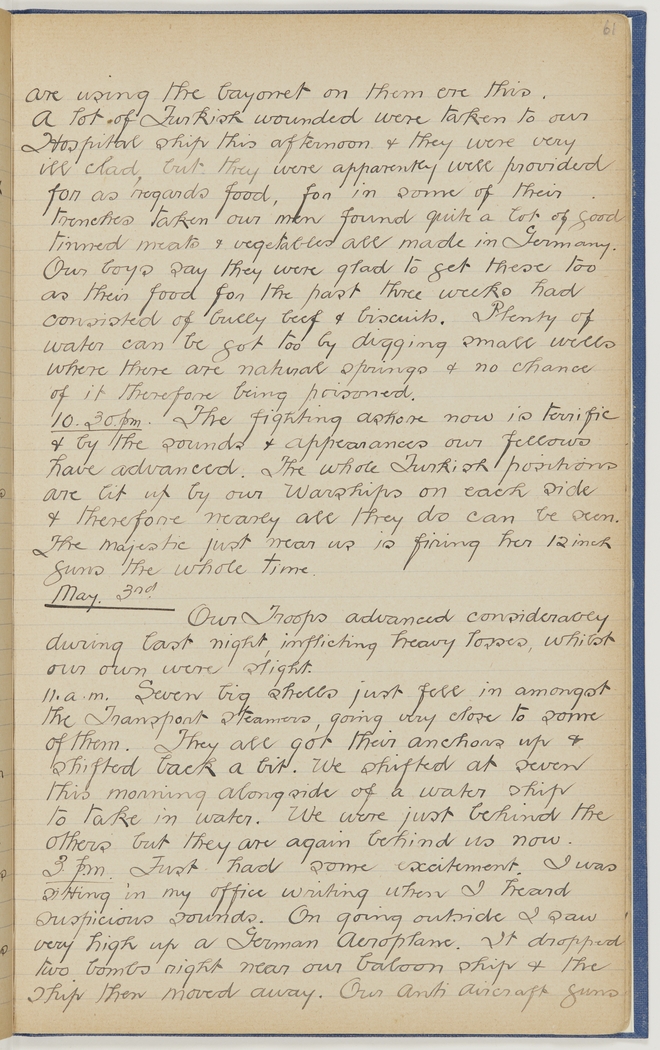 61
are using the bayonet on them ere this.
A lot of Turkish wounded were taken to our
Hospital ship this afternoon & they were very
ill clad, but they were apparently well provided
for as regards food, for in some of their
trenches taken our men found quite a lot of good
tinned meats & vegetables all made in Germany.
Our boys say they were glad to get these too
as their food for the past three weeks had
consisted of bully beef & biscuits. Plenty of
water can be got too by digging small wells
where there are natural springs & no chance
of it therefore being poisoned.
10.30.pm. The fighting ashore now is terrific
& by the sounds & appearances our fellows
have advanced. The whole Turkish positions
are lit up by our Warships on each side
& therefore nearly all they do can be seen.
The Majestic just near us is firing her 12 inch
guns the whole time.
May. 3rd
Our Troops advanced considerably
during last night, inflicting heavy losses, whilst
our own were slight.
11.a.m. Seven big shells just fell in amongst
the Transport steamers, going very close to some
of them. They all got their anchors up &
shifted back a bit. We shifted at seven
this morning alongside of a water ship
to take in water. We were just behind the
others but they are again behind us now.
3 pm. Just had some excitement. I was
sitting in my office writing when I heard
suspicious sounds. On going outside I saw
very high up a German Aeroplane. It dropped
two bombs right near our baloon ship & the
ship then moved away. Our Anti Aircraft guns